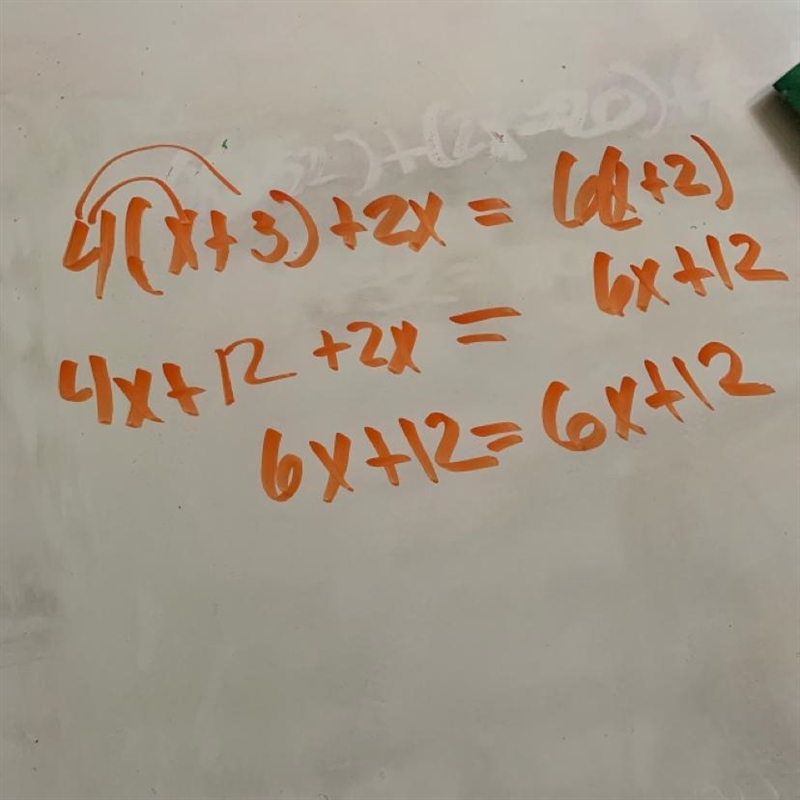 4(x+3)+2x = 6(x+2)
4x+12+2x = 6x+12
6x+12=6x+12